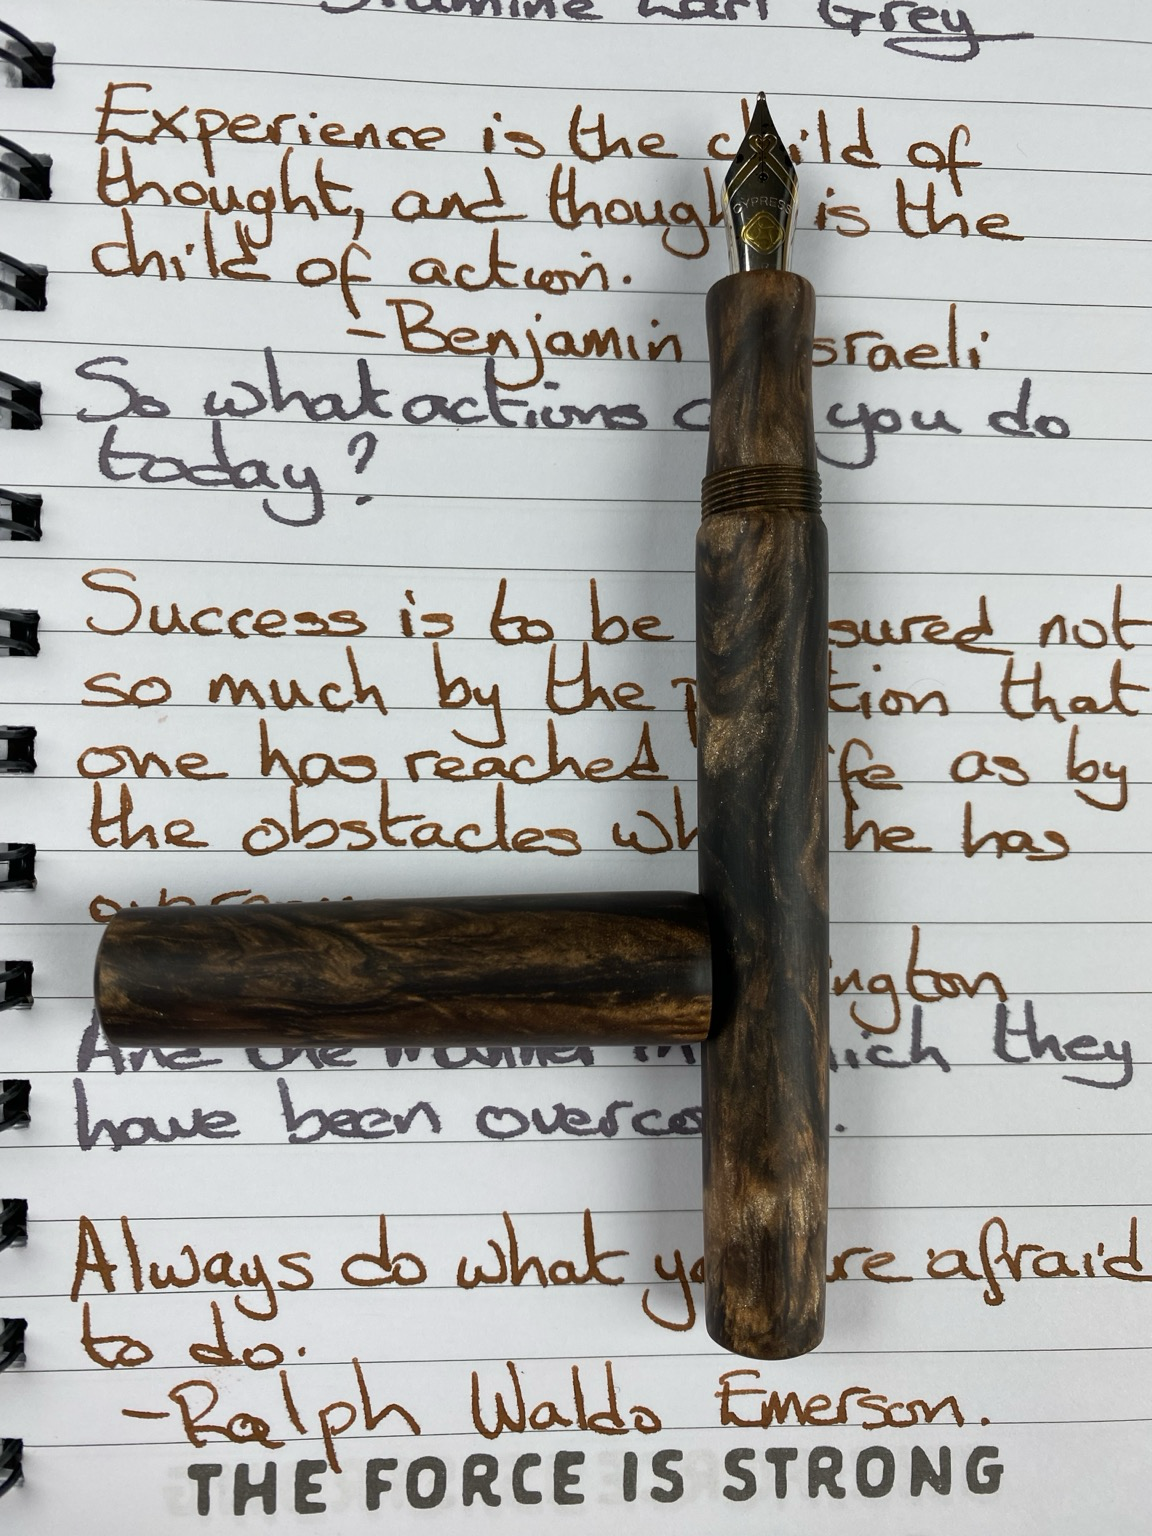 Earl Grey
Experience is the child of
thought, and thought is the
child of action.
-Benjamin Disraeli
So what actions can you do
today?
CYPRESS
Success is to be measured not
so much by the position that
one has reached in life as by
the obstacles which he has
And the manner in which they
have been overcome.
Always do what you are afraid
to do.
-Ralph Waldo Emerson.
THE FORCE IS STRONG